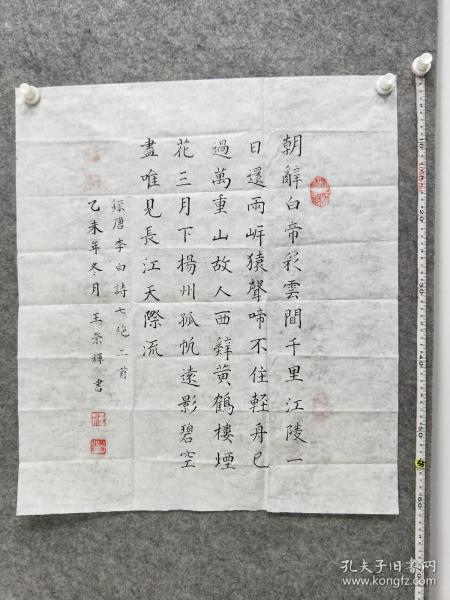 朝辭白帝彩雲間千里江陵一
日還兩岸猿聲啼不住軽舟已
過萬重山故人西辭黄鶴樓煙
花三月下揚州孤帆遠影碧空
盡唯見長江天際流
錄唐李白詩七絶二首
乙未年冬月王崇輝書
孔夫子旧书网
www.kongfz.com